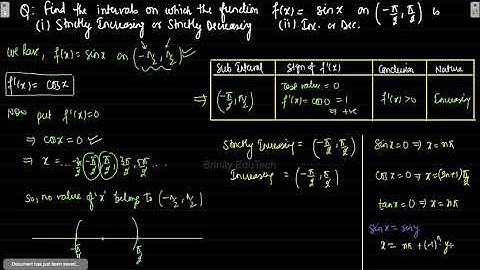 Q: Find the intervals on which the function f(x) = sin x on (-π/2, π/2) is
(i) Strictly Increasing or Strictly Decreasing (ii) Inc. or Dec.
we have, f(x) = sin x on (-π/2, π/2)
f'(x) = cos x
Now put f'(x) = 0
⇒ cos x = 0
⇒ x = ... -π/2, π/2, 3π/2, 5π/2 ...
So, no value of 'x' belong to (-π/2, π/2)
-π/2 π/2
Sub Interval Sign of f'(x) Conclusion Nature
⇒ (-π/2, π/2) Test value = 0 f'(x) > 0 Increasing
f'(x) = cos 0 = 1
⇒ +ve
Strictly Increasing = (-π/2, π/2)
Increasing = (-π/2, π/2)
Brinity EduTech
sin x = 0 ⇒ x = nπ
cos x = 0 ⇒ x = (2n+1)π/2
tan x = 0 ⇒ x = nπ
sin x = sin y
x = nπ + (-1)ⁿ y
Document has just been saved...